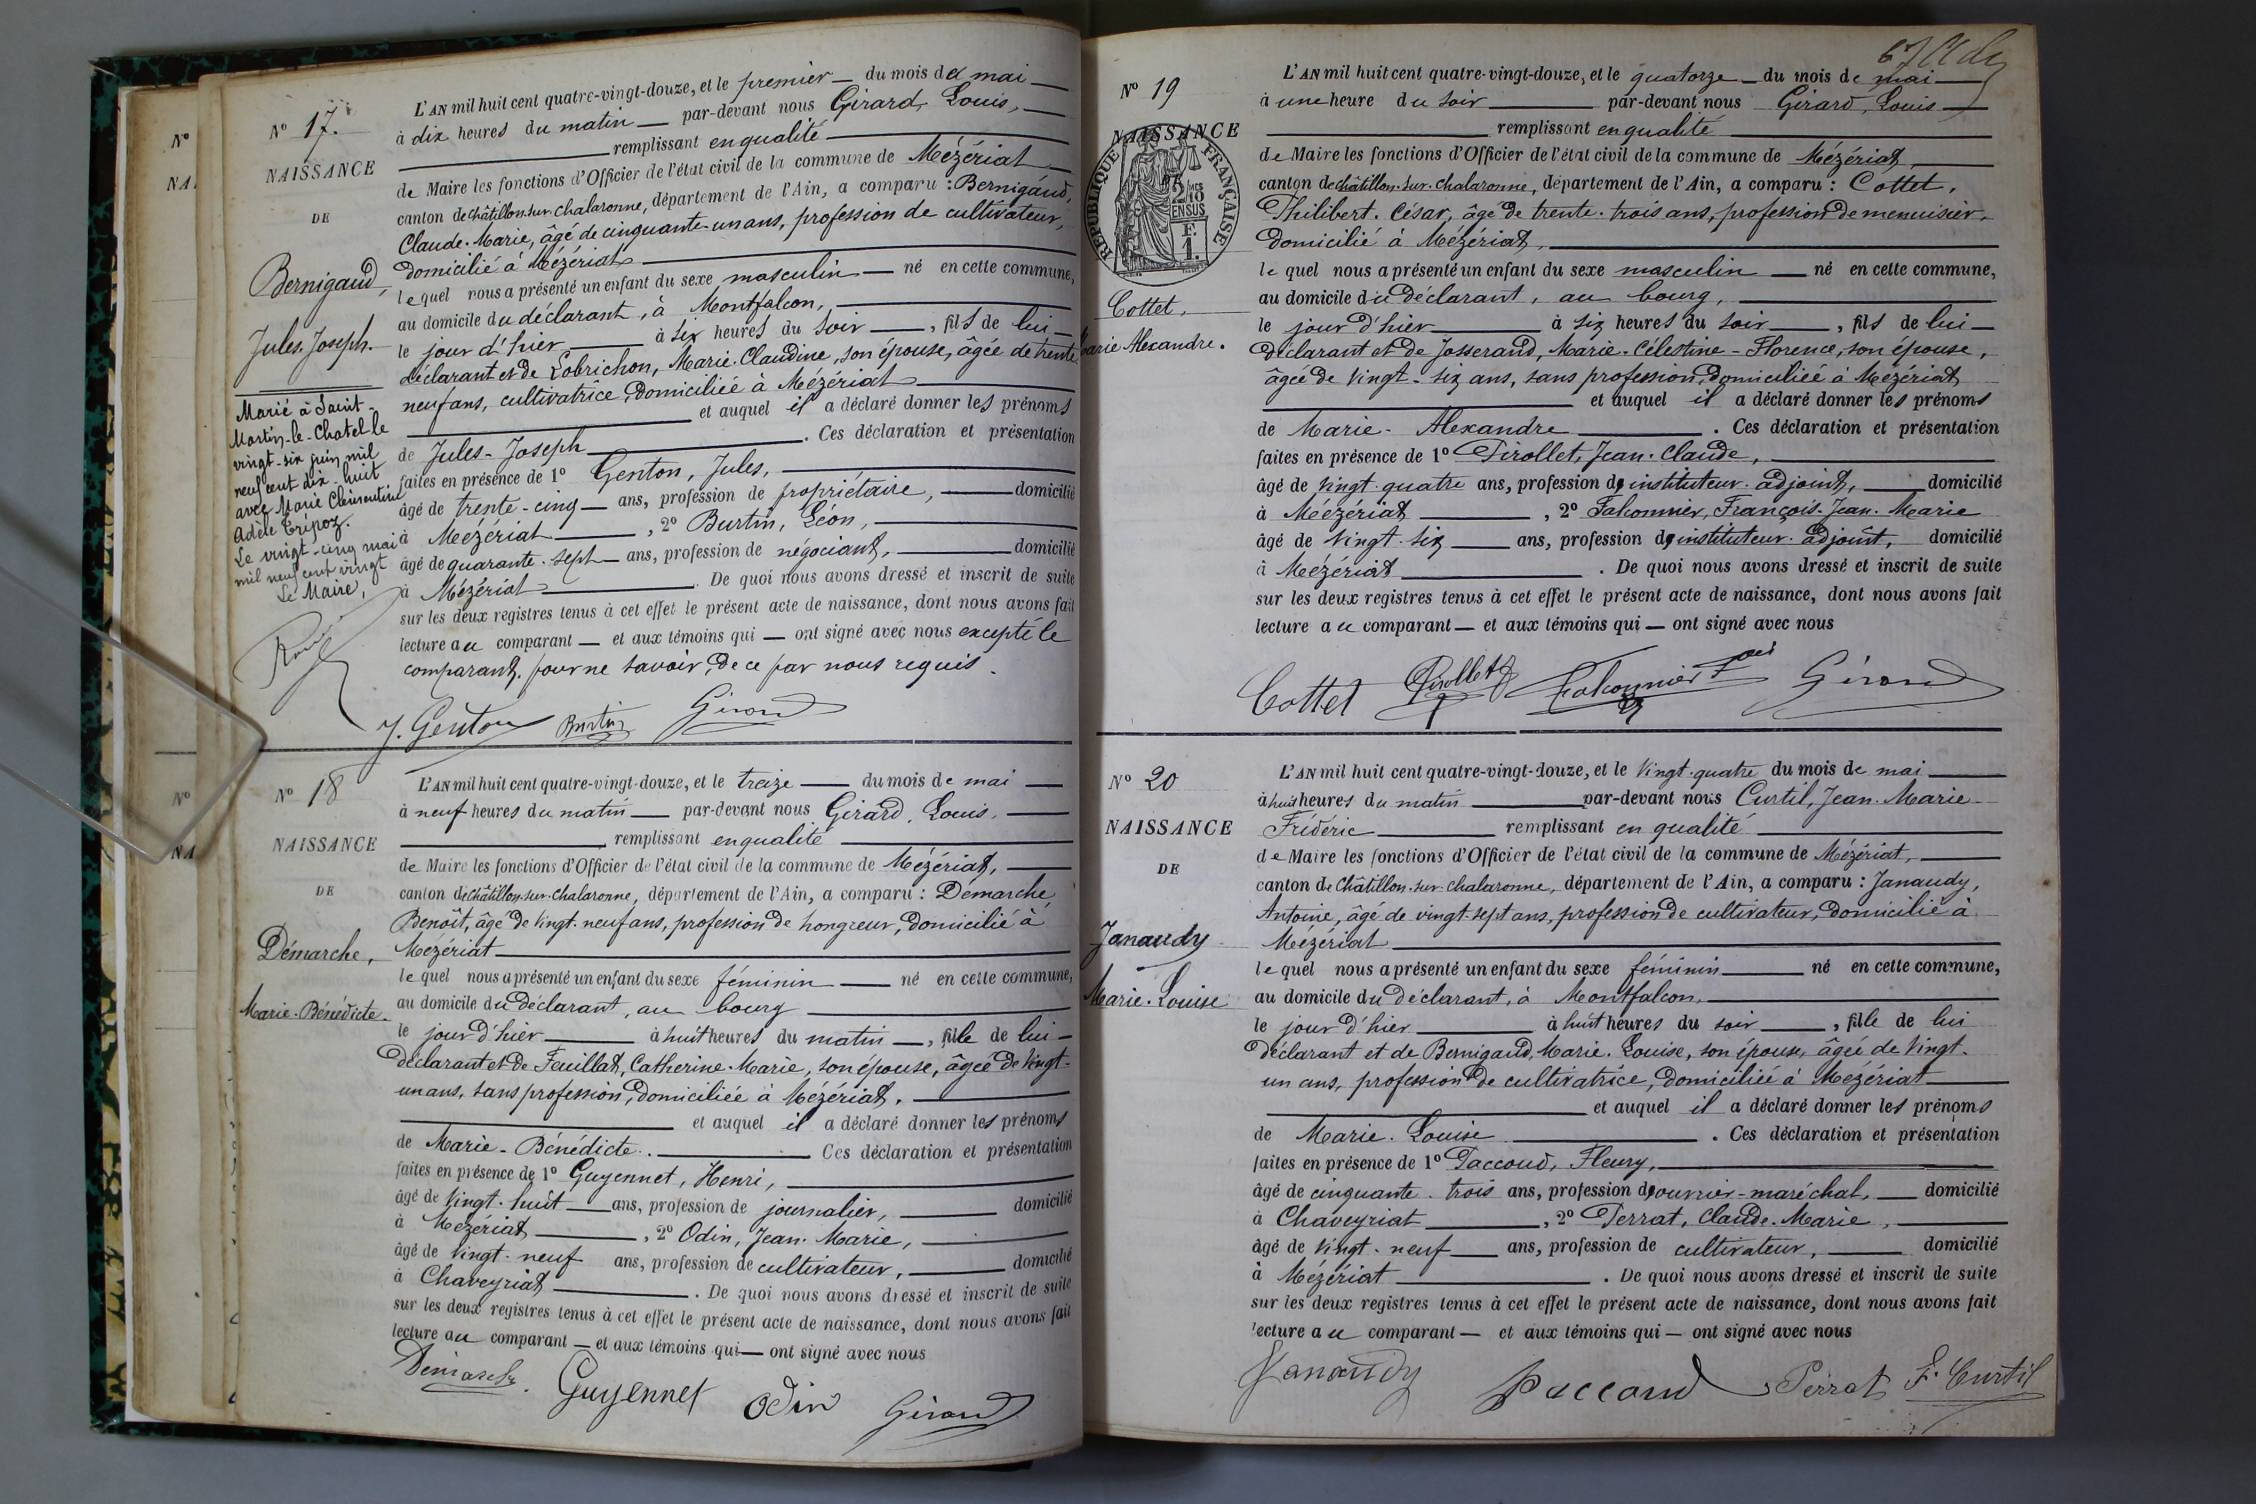 N° 17.
NAISSANCE
DE
Bernigaud,
Jules-Joseph.
Marié à Saint-
Martin-le-Chatel le
vingt-six juin mil
neuf cent dix-huit
avec Marie Clémentine
Adèle Trépoz.
Le vingt-cinq mai
mil neuf cent vingt
Le Maire,
L'AN mil huit cent quatre-vingt-douze, et le premier du mois de mai
à dix heures du matin par-devant nous Girard, Louis,
remplissant en qualité
de Maire les fonctions d'Officier de l'état civil de la commune de Mézériat
canton de Châtillon-sur-Chalaronne, département de l'Ain, a comparu : Bernigaud,
Claude-Marie, âgé de cinquante-un ans, profession de cultivateur,
domicilié à Mézériat
lequel nous a présenté un enfant du sexe masculin né en cette commune,
au domicile du déclarant, à Montfalcon,
le jour d'hier à six heures du soir, fils de lui
déclarant et de Lobrichon, Marie-Claudine, son épouse, âgée de trente
neuf ans, cultivatrice, domiciliée à Mézériat
et auquel il a déclaré donner les prénoms
de Jules-Joseph. Ces déclaration et présentation
faites en présence de 1° Genton, Jules,
âgé de trente-cinq ans, profession de propriétaire, domicilié
à Mézériat, 2° Burtin, Léon,
âgé de quarante-sept ans, profession de négociant, domicilié
à Mézériat. De quoi nous avons dressé et inscrit de suite
sur les deux registres tenus à cet effet le présent acte de naissance, dont nous avons fait
lecture au comparant et aux témoins qui ont signé avec nous excepté le
comparant, pour ne savoir, de ce par nous requis.
J. Genton Burtin Girard
N° 18
NAISSANCE
DE
Démarche,
Marie-Bénédicte.
L'AN mil huit cent quatre-vingt-douze, et le treize du mois de mai
à neuf heures du matin par-devant nous Girard, Louis,
remplissant en qualité
de Maire les fonctions d'Officier de l'état civil de la commune de Mézériat,
canton de Châtillon-sur-Chalaronne, département de l'Ain, a comparu : Démarche
Benoît, âgé de vingt-neuf ans, profession de hongreur, domicilié à
Mézériat
lequel nous a présenté un enfant du sexe féminin né en cette commune,
au domicile du déclarant, au bourg
le jour d'hier à huit heures du matin, fille de lui
déclarant et de Feuillat, Catherine-Marie, son épouse, âgée de vingt-
un ans, sans profession, domiciliée à Mézériat.
et auquel il a déclaré donner les prénoms
de Marie-Bénédicte. Ces déclaration et présentation
faites en présence de 1° Guyennet, Henri,
âgé de vingt-huit ans, profession de journalier, domicilié
à Mézériat, 2° Odin, Jean-Marie,
âgé de vingt-neuf ans, profession de cultivateur, domicilié
à Chaveyriat. De quoi nous avons dressé et inscrit de suite
sur les deux registres tenus à cet effet le présent acte de naissance, dont nous avons fait
lecture au comparant et aux témoins qui ont signé avec nous
Démarche Guyennet Odin Girard
N° 19
NAISSANCE
RÉPUBLIQUE FRANÇAISE
2/10 EN SUS
F. 1.
Cottet,
Marie Alexandre.
L'AN mil huit cent quatre-vingt-douze, et le quatorze du mois de mai
à une heure du soir par-devant nous Girard, Louis
remplissant en qualité
de Maire les fonctions d'Officier de l'état civil de la commune de Mézériat,
canton de Châtillon-sur-Chalaronne, département de l'Ain, a comparu : Cottet,
Philibert-César, âgé de trente-trois ans, profession de menuisier,
domicilié à Mézériat,
lequel nous a présenté un enfant du sexe masculin né en cette commune,
au domicile du déclarant, au bourg,
le jour d'hier à six heures du soir, fils de lui
déclarant et de Josserand, Marie-Célestine-Florence, son épouse,
âgée de vingt-six ans, sans profession, domiciliée à Mézériat
et auquel il a déclaré donner les prénoms
de Marie-Alexandre. Ces déclaration et présentation
faites en présence de 1° Pirollet, Jean-Claude,
âgé de vingt-quatre ans, profession d'instituteur-adjoint, domicilié
à Mézériat, 2° Falconnier, François-Jean-Marie
âgé de vingt-six ans, profession d'instituteur-adjoint, domicilié
à Mézériat. De quoi nous avons dressé et inscrit de suite
sur les deux registres tenus à cet effet le présent acte de naissance, dont nous avons fait
lecture au comparant et aux témoins qui ont signé avec nous
Cottet Pirollet Falconnier Fçois Girard
N° 20
NAISSANCE
DE
Janaudy
Marie-Louise
L'AN mil huit cent quatre-vingt-douze, et le vingt-quatre du mois de mai
à huit heures du matin par-devant nous Curtil, Jean-Marie
Frédéric remplissant en qualité
de Maire les fonctions d'Officier de l'état civil de la commune de Mézériat,
canton de Châtillon-sur-Chalaronne, département de l'Ain, a comparu : Janaudy,
Antoine, âgé de vingt-sept ans, profession de cultivateur, domicilié à
Mézériat
lequel nous a présenté un enfant du sexe féminin né en cette commune,
au domicile du déclarant, à Montfalcon,
le jour d'hier à huit heures du soir, fille de lui
déclarant et de Bernigaud, Marie-Louise, son épouse, âgée de vingt-
un ans, profession de cultivatrice, domiciliée à Mézériat
et auquel il a déclaré donner les prénoms
de Marie-Louise. Ces déclaration et présentation
faites en présence de 1° Paccoud, Fleury,
âgé de cinquante-trois ans, profession d'ouvrier-maréchal, domicilié
à Chaveyriat, 2° Perrat, Claude-Marie,
âgé de vingt-neuf ans, profession de cultivateur, domicilié
à Mézériat. De quoi nous avons dressé et inscrit de suite
sur les deux registres tenus à cet effet le présent acte de naissance, dont nous avons fait
lecture au comparant et aux témoins qui ont signé avec nous
Janaudy Paccoud Perrat F. Curtil